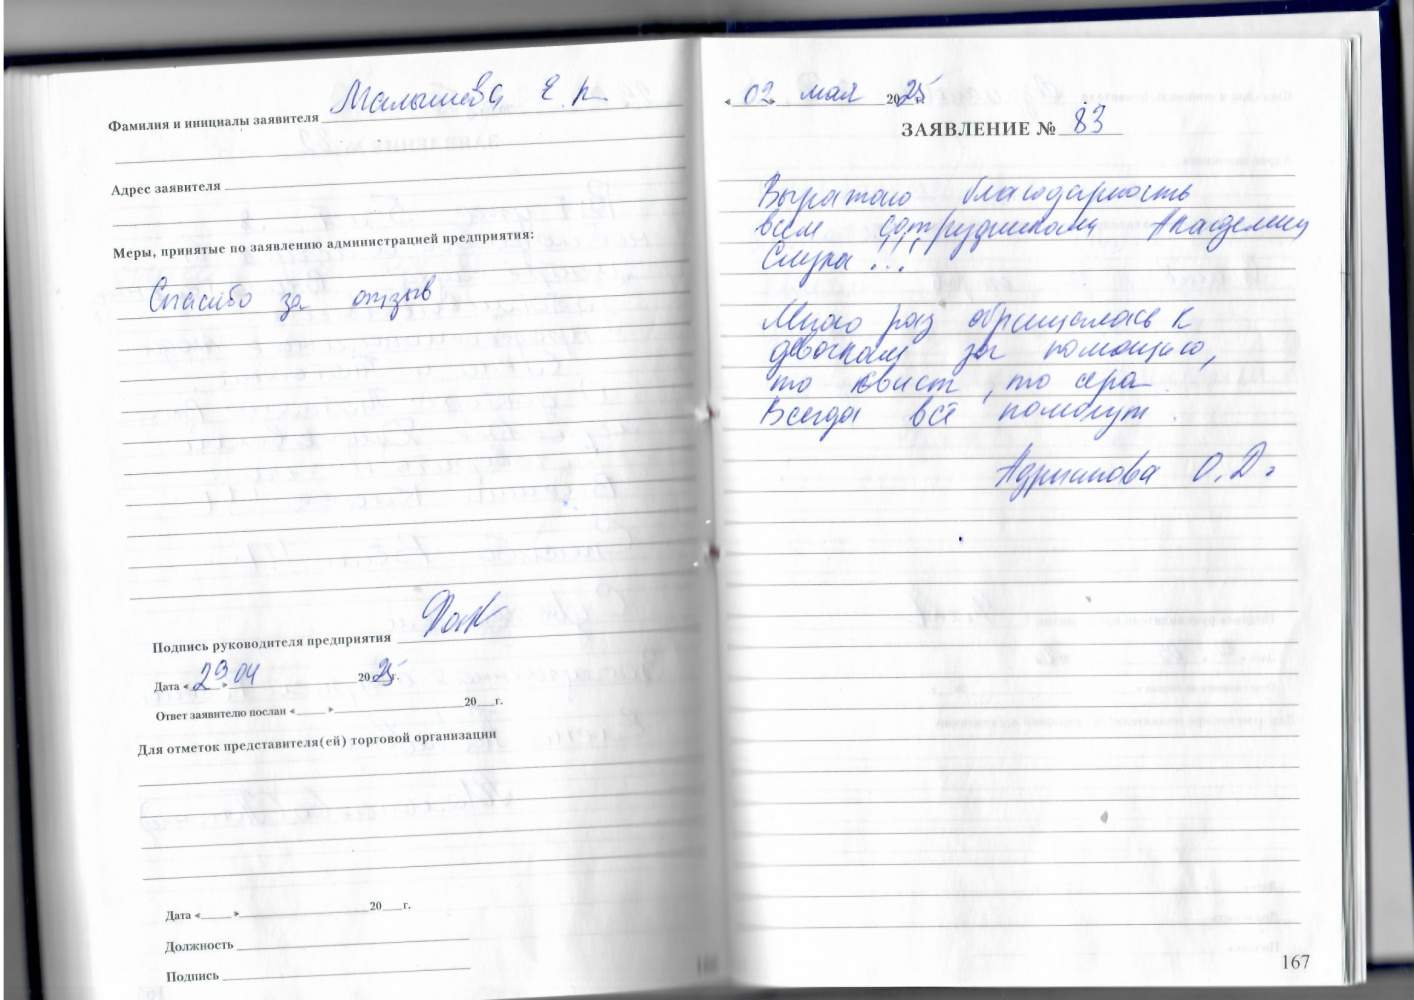 Фамилия и инициалы заявителя Малышева Е.К
Адрес заявителя
Меры, принятые по заявлению администрацией предприятия:
Спасибо за отзыв
Подпись руководителя предприятия
Дата «29» 04 2025 г.
Ответ заявителю послан « » 20 г.
Для отметок представителя(ей) торговой организации
Дата « » 20 г.
Должность
Подпись
«02» мая 2025 г.
ЗАЯВЛЕНИЕ № 83
Выражаю благодарность
всем сотрудникам Академии
Слуха!!!
Много раз обращалась к
девочкам за помощью,
то свист, то сера.
Всегда всё помогут.
О.Д.
167